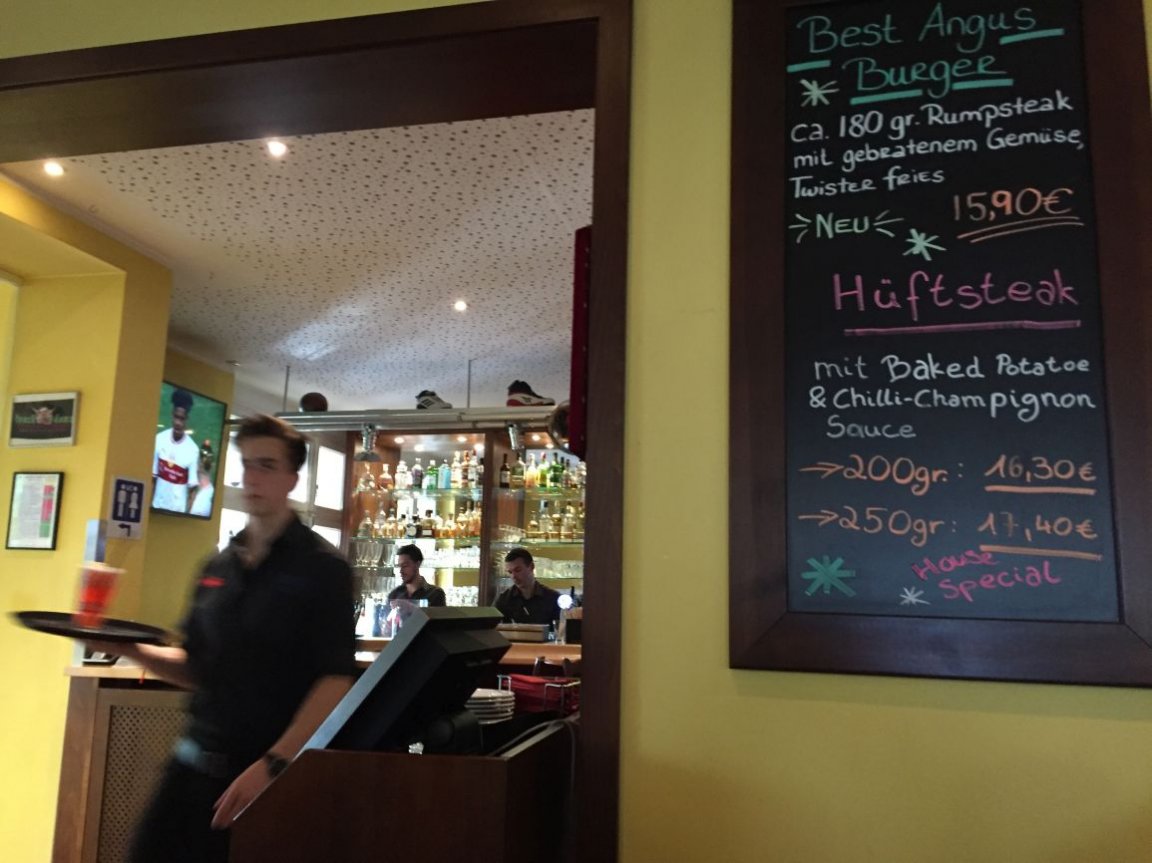 Best Angus
Burger
ca. 180 gr. Rumpsteak
mit gebratenem Gemüse,
Twister fries
NEU
15,90€
Hüftsteak
mit Baked Potatoe
& Chilli-Champignon
Sauce
→200gr.: 16,30€
→250gr: 17,40€
House
Special